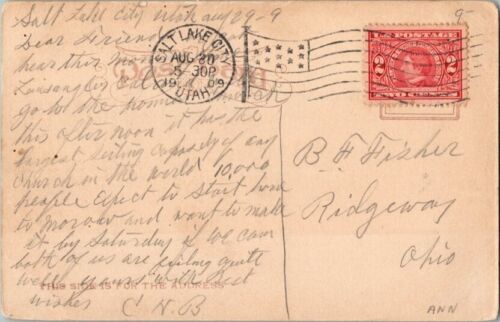 Salt Lake City Utah Aug 29-9
Dear Friend
hear this mor
go to the
this afternoon it has the
largest seating capacity of any
church in the world 10,000
people Expect to start home
to morrow and want to make
it by Saturday if we can
both of us are feiling quite
well yours with best
wishes C N B
THIS SIDE IS FOR THE ADDRESS
SALT LAKE CITY
AUG 30
5-30P
1909
UTAH
POSTAGE
2 2
B F Fisher
Ridgeway
Ohio
9-
ANN